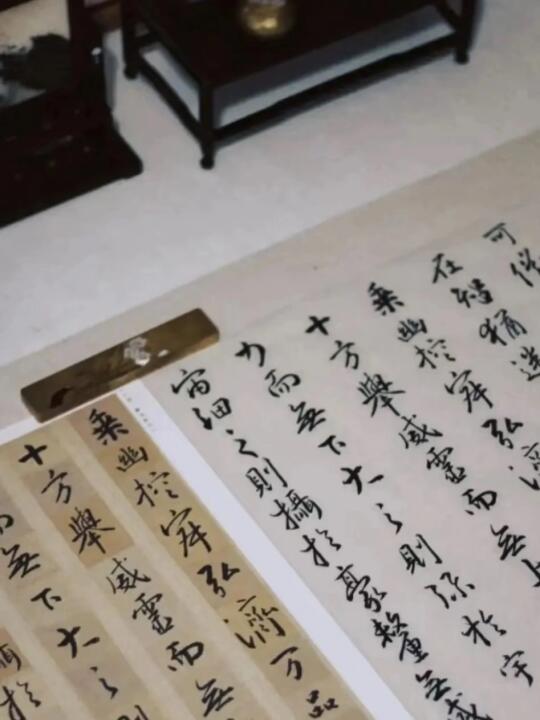 可
在智猶迷
乘幽控寂弘濟
十方舉威靈而無上
力而無下大之則弥於宇
宙細之則攝於豪釐無滅
乘幽控寂弘濟万品
十方舉威靈而無
而無下大之則
攝於